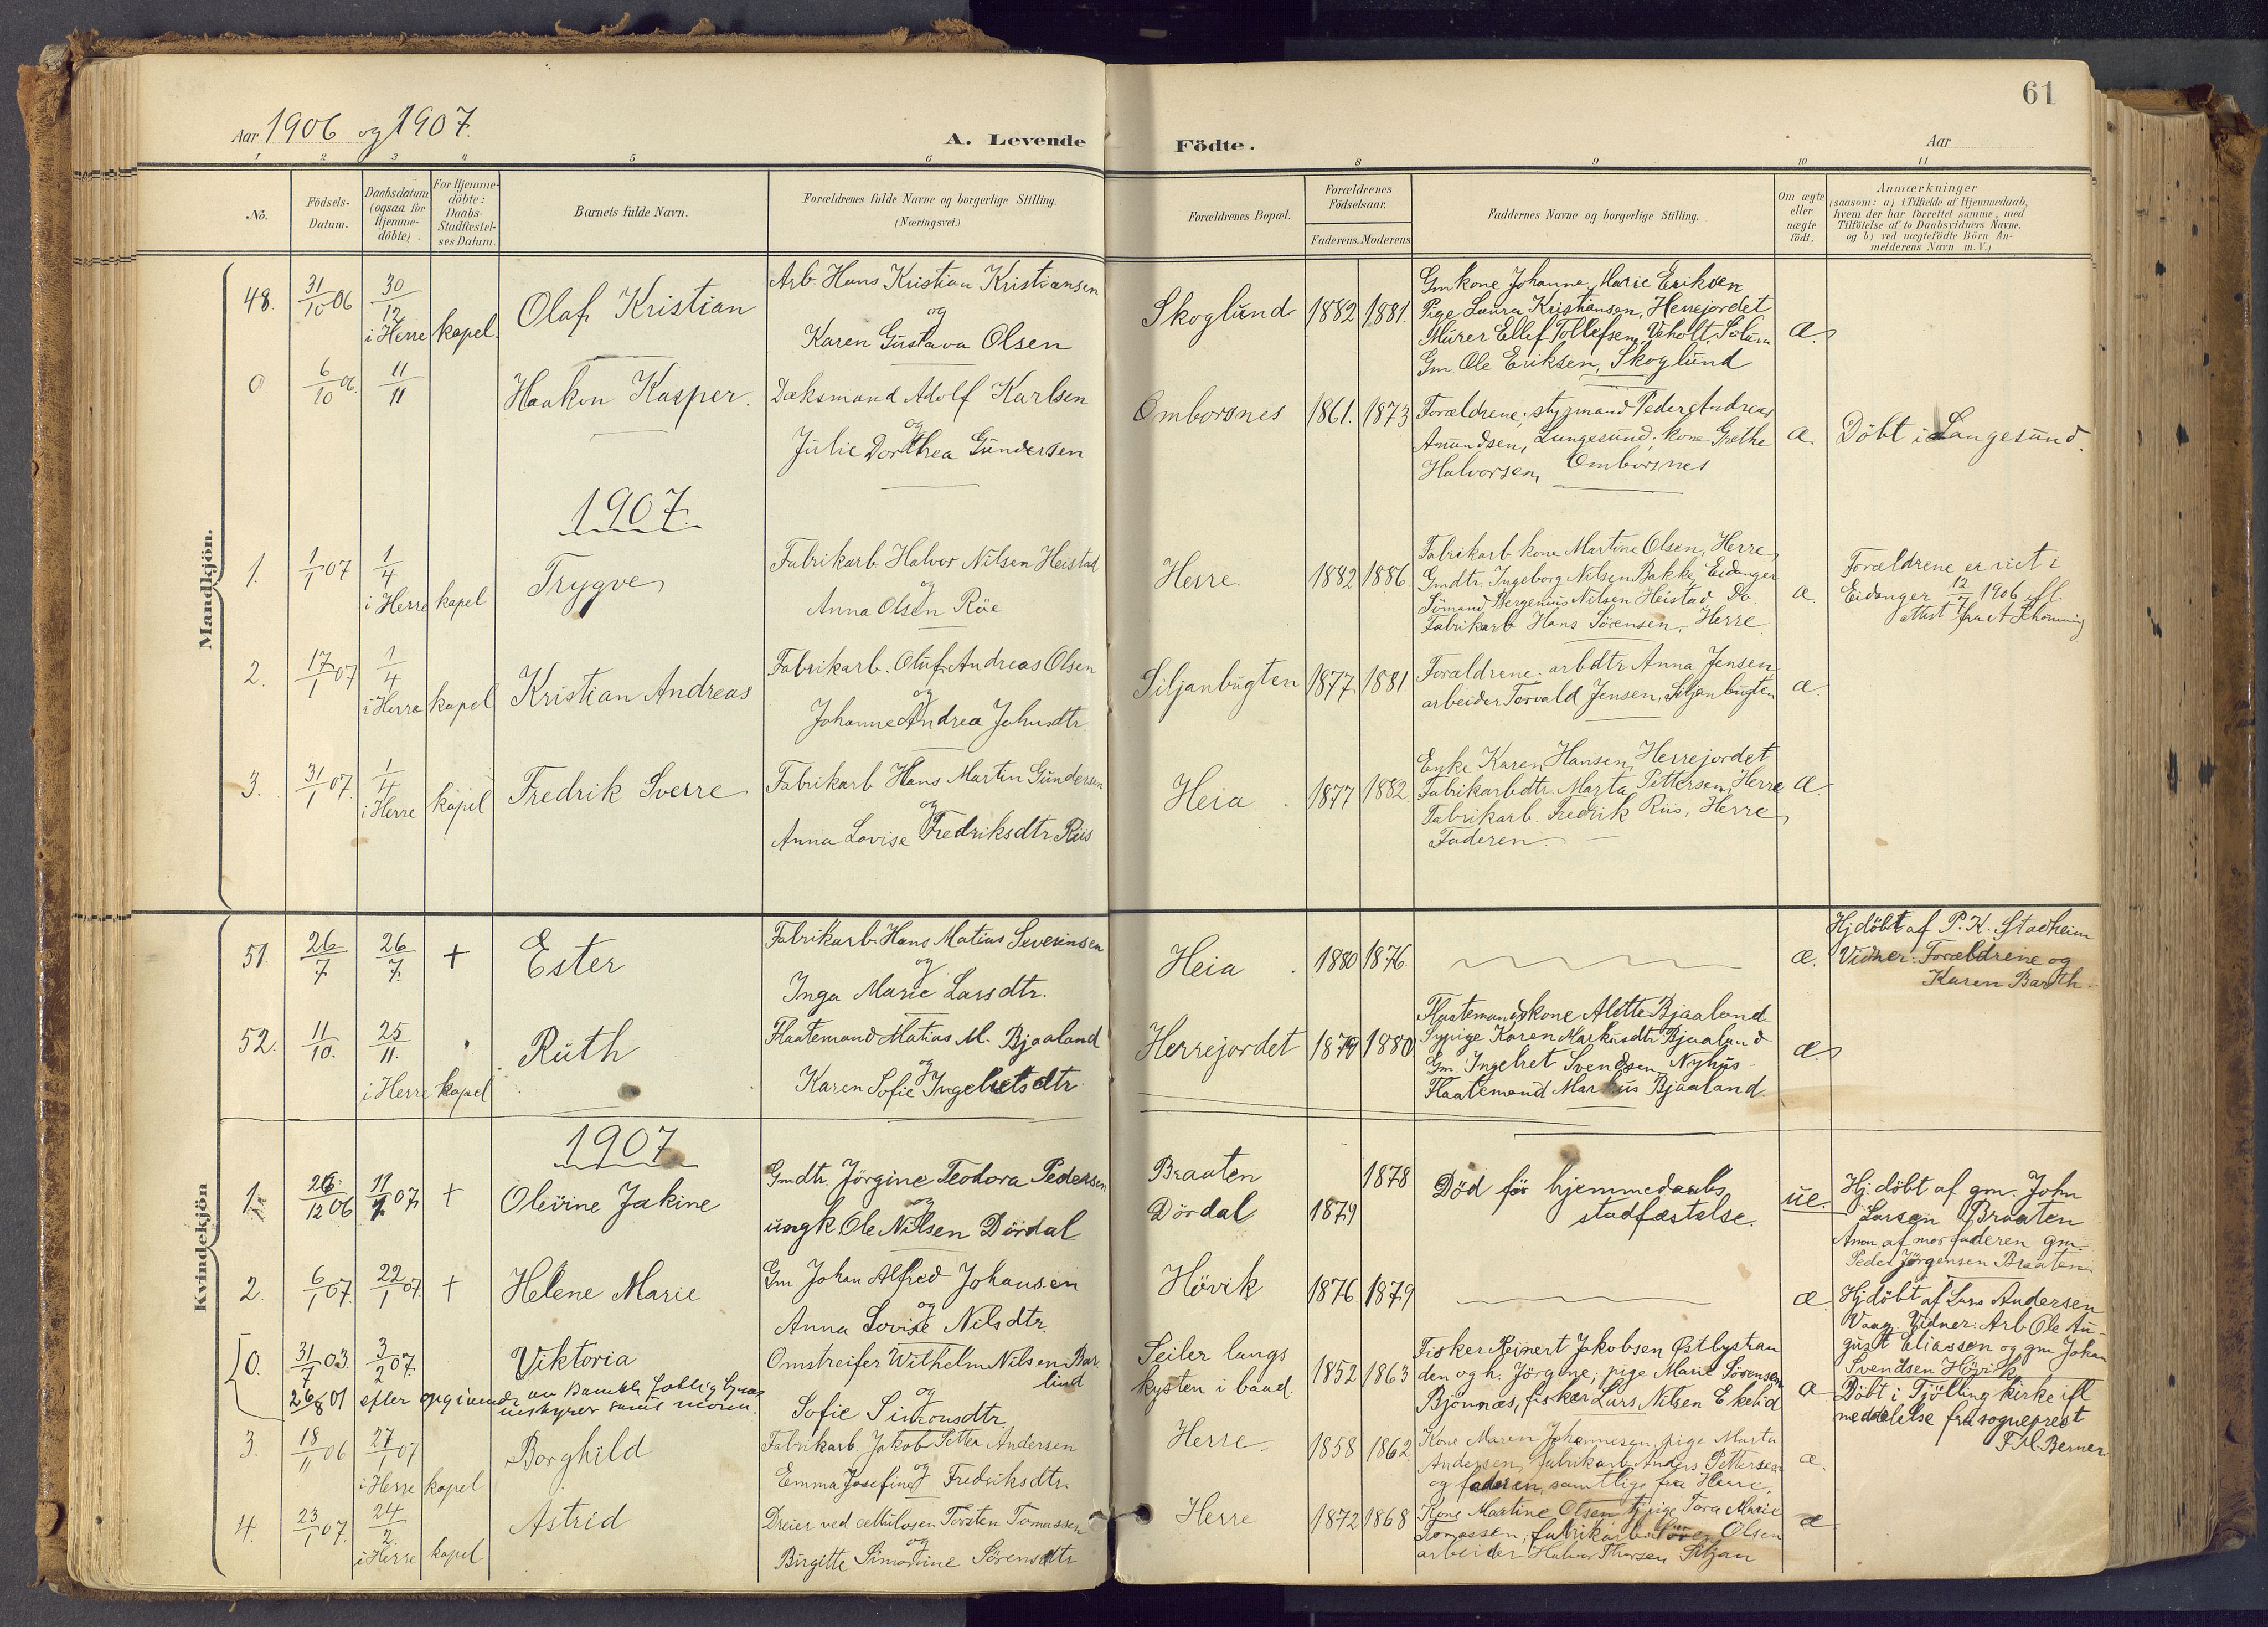 61
Aar 1906 og 1907.
A. Levende Födte.
Aar
1 2 3 4 5 6 8 9 10 11
No.
Födsels-
Datum.
Daabsdatum
(ogsaa for
Hjemme-
döbte).
For Hjemme-
döbte:
Daabs-
Stadfæstel-
ses Datum.
Barnets fulde Navn.
Forældrenes fulde Navne og borgerlige Stilling.
(Næringsvei.)
Forældrenes Bopæl.
Forældrenes
Födselsaar.
Faderens. Moderens.
Faddernes Navne og borgerlige Stilling.
Om ægte
eller
uægte
født.
Anmærkninger
(saasom: a) i Tilfælde af Hjemmedaab,
hvem der har forrettet samme, med
Tilföielse af to Daabsvidners Navne.
og b) ved uægtefödte Börn An-
melderens Navn m. V.)
Mandkjön.
48.
31/10 06
30/12
i Herre kapel.
Olaf Kristian
Arb. Hans Kristian Kristiansen
og
Karen Gustava Olsen
Skoglund
1882
1881.
Gmkone Johanne Marie Eriksen
Pige Laura Kristiansen, Herrejordet
Murer Ellef Tollefsen, Solum
Gm Ole Eriksen, Skoglund
æ.
0
6/10 06.
11/11
Haakon Kasper.
Dæksmand Adolf Karlsen
og
Julie Dorthea Gundersen
Omborsnes
1861.
1873
Forældrene; styrmand Peder Andreas
Amundsen, Langesund; kone Grethe
Halvorsen, Omborsnes
æ.
Döbt i Langesund.
1907.
1.
1/1 07
1/4
i Herre kapel
Trygve
Fabrikarb. Halvor Nilsen Heistad
og
Anna Olsen Röe
Herre.
1882
1886.
Fabrikarb. kone Martine Olsen, Herre
Gmdtr. Ingeborg Nilsen Bakke, Eidanger
Sömand Bergenius Nilsen Heistad, Do.
Fabrikarb Hans Sörensen, Herre
æ.
Forældrene er viet i
Eidanger 12/7 1906 ifl.
attest fra A Schanning
2.
17/1 07
1/4
i Herre kapel
Kristian Andreas
Fabrikarb. Oluf Andreas Olsen
og
Johanne Andrea Johnsdtr.
Siljanbugten
1877
1881.
Forældrene. arbdtr Anna Jensen,
arbeider Torvald Jensen, Siljanbugten
æ.
3.
31/1 07.
1/4
i Herre kapel
Fredrik Sverre
Fabrikarb Hans Martin Gundersen
og
Anna Lovise Fredriksdtr. Riis
Heia.
1877
1882
Enke Karen Hansen, Herrejordet
Fabrikarbdtr. Marta Pettersen, Herre
Fabrikarb. Fredrik Riis, Herre
Faderen.
æ.
Kvindekjön
51.
26/7
26/7.
+
Ester
Fabrikarb. Hans Matias Severinsen
og
Inga Marie Larsdtr.
Heia.
1880
1876.
æ.
Hjdöbt af P. K. Stadheim
Vidner: Forældrene og
Karen Barth.
52.
11/10.
25/11.
i Herre kapel
Ruth
Flaatemand Matias M. Bjaaland
og
Karen Sofie Ingebretsdtr
Herrejordet
1879
1880
Flaatemandskone Alette Bjaaland
Sypige Karen Markusdtr Bjaaland
Gm. Ingebret Svendsen Nyhus
Flaatemand Markus Bjaaland.
æ.
1907
1.
26/12 06
11/1 07
+
Olevine Jakine
Gmdtr. Jörgine Teodora Pedersen
og
ungk Ole Nilsen Dördal
Braaten
Dördal
1879
1878
Död för hjemmedaabs
stadfæstelse.
uæ.
Hj. döbt af gm. John
Larsen Braaten
Anm. af morfaderen gm.
Peder Jörgensen Braaten.
2.
6/1 07.
22/1 07.
+
Helene Marie
Gm Johan Alfred Johansen
og
Anna Lovise Nilsdtr.
Hövik
1876.
1879
æ.
Hjdöbt af Lars Andersen
Vaag. Vidner: Arb Ole Au-
gust Eliassen og gm Johan
Svendsen Hövik
0.
31/7 03.
3/2 07.
26/8 01 efter opgivende av Bamble
Viktoria
Omstreifer Wilhelm Nilsen Bar
lind
og
Sofie Simonsdtr
Seiler langs
kysten i baad.
1852
1863
Fisker Reinert Jakobsen Østbystran
den og h. Jörgine, pige Marie Sörensen
Bjönnæs, fisker Lars Nilsen Ekelid
æ
Döbt i Tjölling kirke ifl
meddelelse fra sogneprest
F. M. Berner
3.
18/11 06
27/1 07
i Herre kapel
Borghild
Fabrikarb. Jakob Petter Andersen
og
Emma Josefine Fredriksdtr.
Herre.
1858
1862.
Kone Maren Johannesen, pige Marta
Andersen, fabrikarb. Anders Pettersen
og faderen, samtlige fra Herre.
æ.
4.
23/1 07.
24/2
i Herre kapel
Astrid
Dreier ved cellulosen Torsten Tomassen
og
Birgitte Simartine Sörensdtr
Herre
1872
1868
Kone Martine Olsen, pige Tora Marie
Tomassen, fabrikarb. Olsen
arbeider Halvor Thorsen Siljan
æ